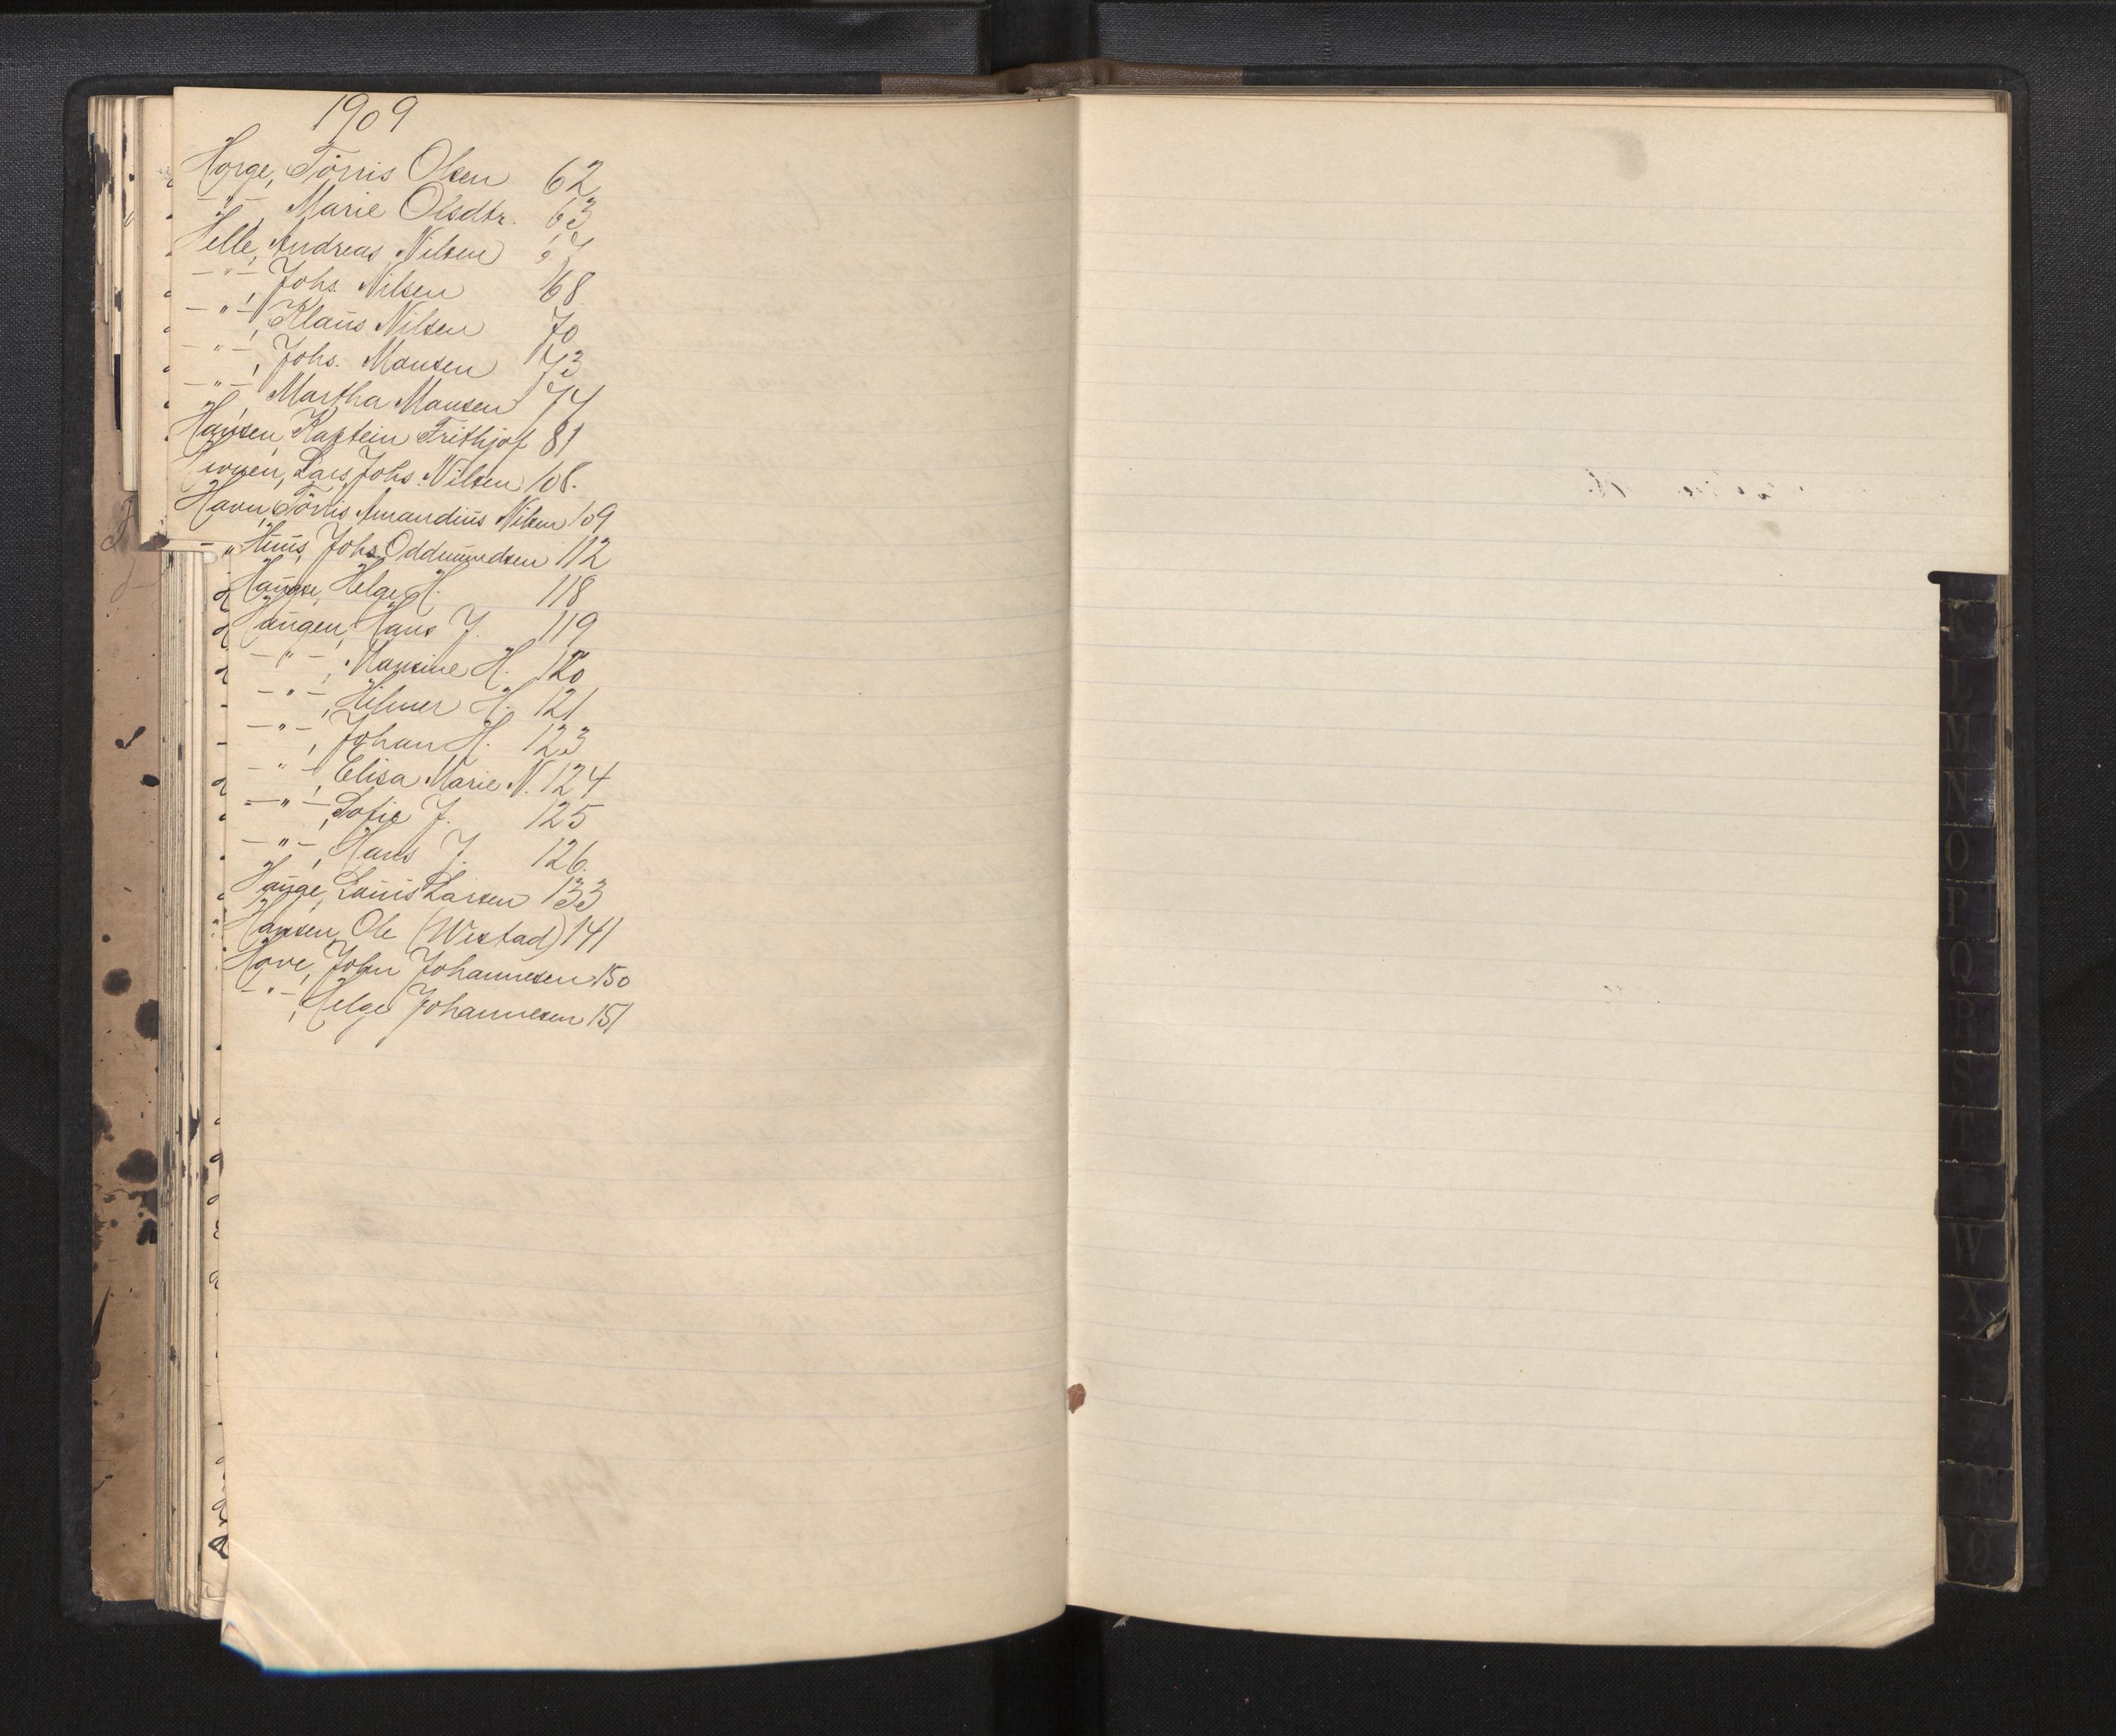 1909
Horge, Törris Olsen 62
-"-, Marie Olsdtr. 63
Helle, Andreas Nilsen 67
-"-, Johs. Nilsen 68
-"-, Klaus Nilsen 70
-"-, Johs. Monsen 73
-"-, Martha Monsen 74
Hansen, Kaptein Frithjof 81
Lars Johs. Nilsen 108.
Havn, Törris Amandius Nilsen 109
-"- Johs. Oddmundsen 112
Hauge, Helge H. 118
Haugen, Hans J. 119
-"-, Hansine H. 120
-"-, Hilmer H. 121
-"-, Johan H. 123
-"-, Elisa Marie N. 124
-"-, Sofie J. 125
-"-, Hans J. 126.
Hauge, Louis Larsen 133
Hansen, Ole (Westad) 141
Hove, John Johannesen 150
-"-, Helge Johannesen 151
L
M
N
O
P
Q
R
S
T
W
X